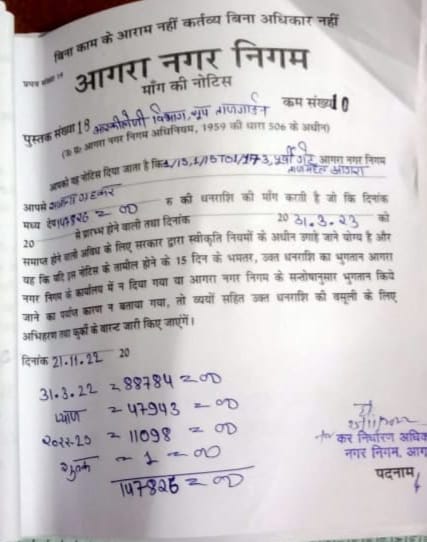 बिना काम के आराम नहीं कर्तव्य बिना अधिकार नहीं
आगरा नगर निगम
माँग की नोटिस
पुस्तक संख्या 18 क्रम संख्या 10
(उ० प्र० आगरा नगर निगम अधिनियम, 1959 की धारा 506 के अधीन)
आपको यह नोटिस दिया जाता है कि पूर्वी गेट आगरा नगर निगम
ताजमहल आगरा
आपसे गृहकर
मध्य 147826=00 रु की धनराशि की माँग करती है जो कि दिनांक
20 से प्रारम्भ होने वाली तथा दिनांक 20 31.3.23 को
समाप्त होने वाली अवधि के लिए सरकार द्वारा स्वीकृति नियमों के अधीन उगाहे जाने योग्य है और
यह कि यदि इस नोटिस के तामील होने के 15 दिन के भीतर, उक्त धनराशि का भुगतान आगरा
नगर निगम के कार्यालय में न दिया गया या आगरा नगर निगम के सन्तोषानुसार भुगतान किये
जाने का पर्याप्त कारण न बताया गया, तो व्ययों सहित उक्त धनराशि की वसूली के लिए
अभिहरण तथा कुर्की के वारन्ट जारी किए जाएंगें।
दिनांक 21.11.22 20
31.3.22 = 88784=00
ब्याज = 47943=00
= 11098=00
शुल्क = 1=00
147826=00
कर निर्धारण अधिक
नगर निगम, आग
पदनाम